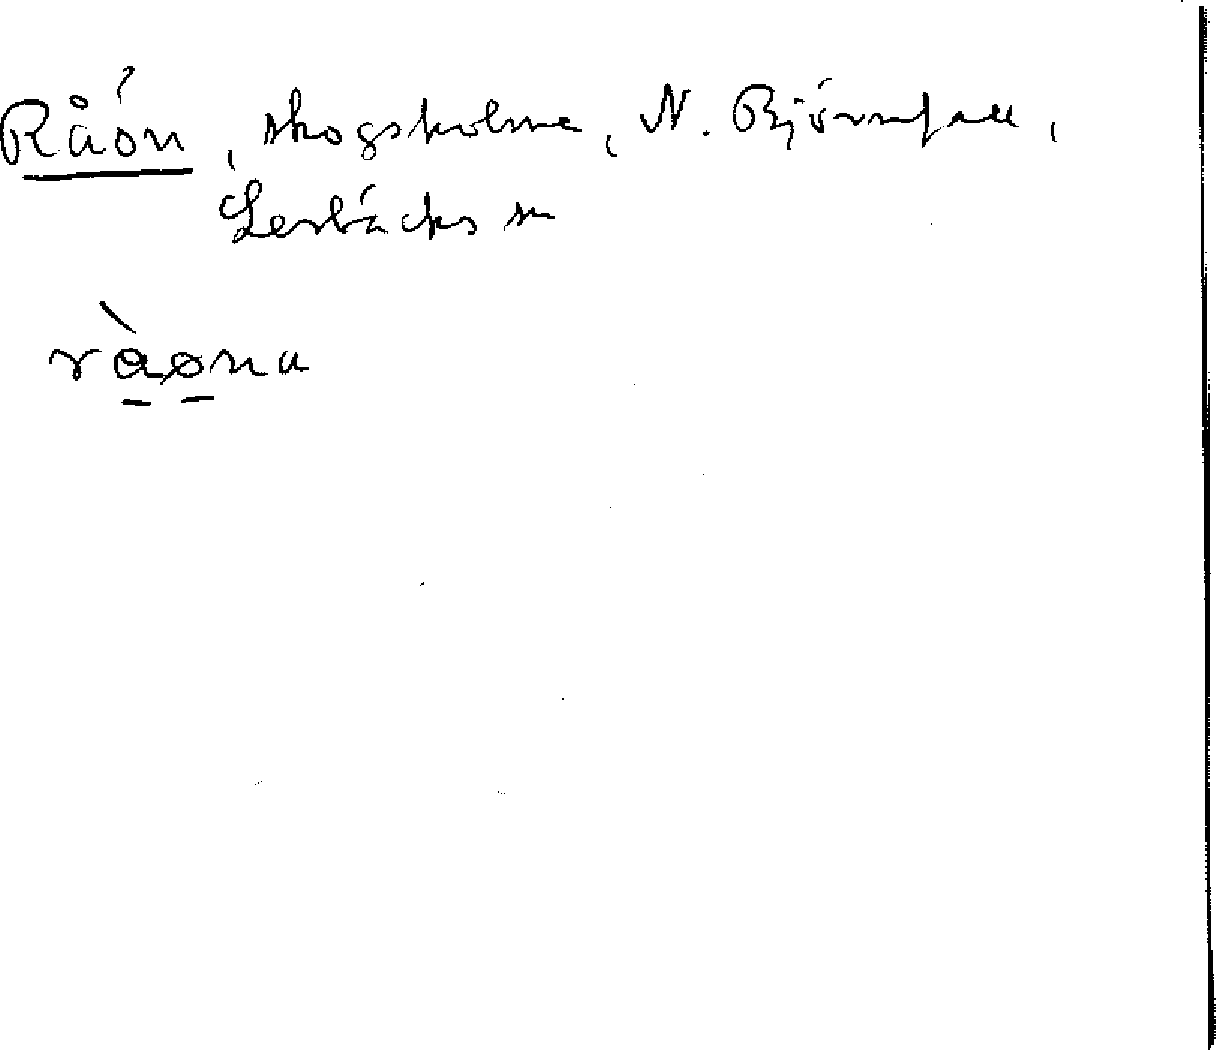 Råön, skogsholme, N. Björnfall,
Lerbäcks sn
ràøna